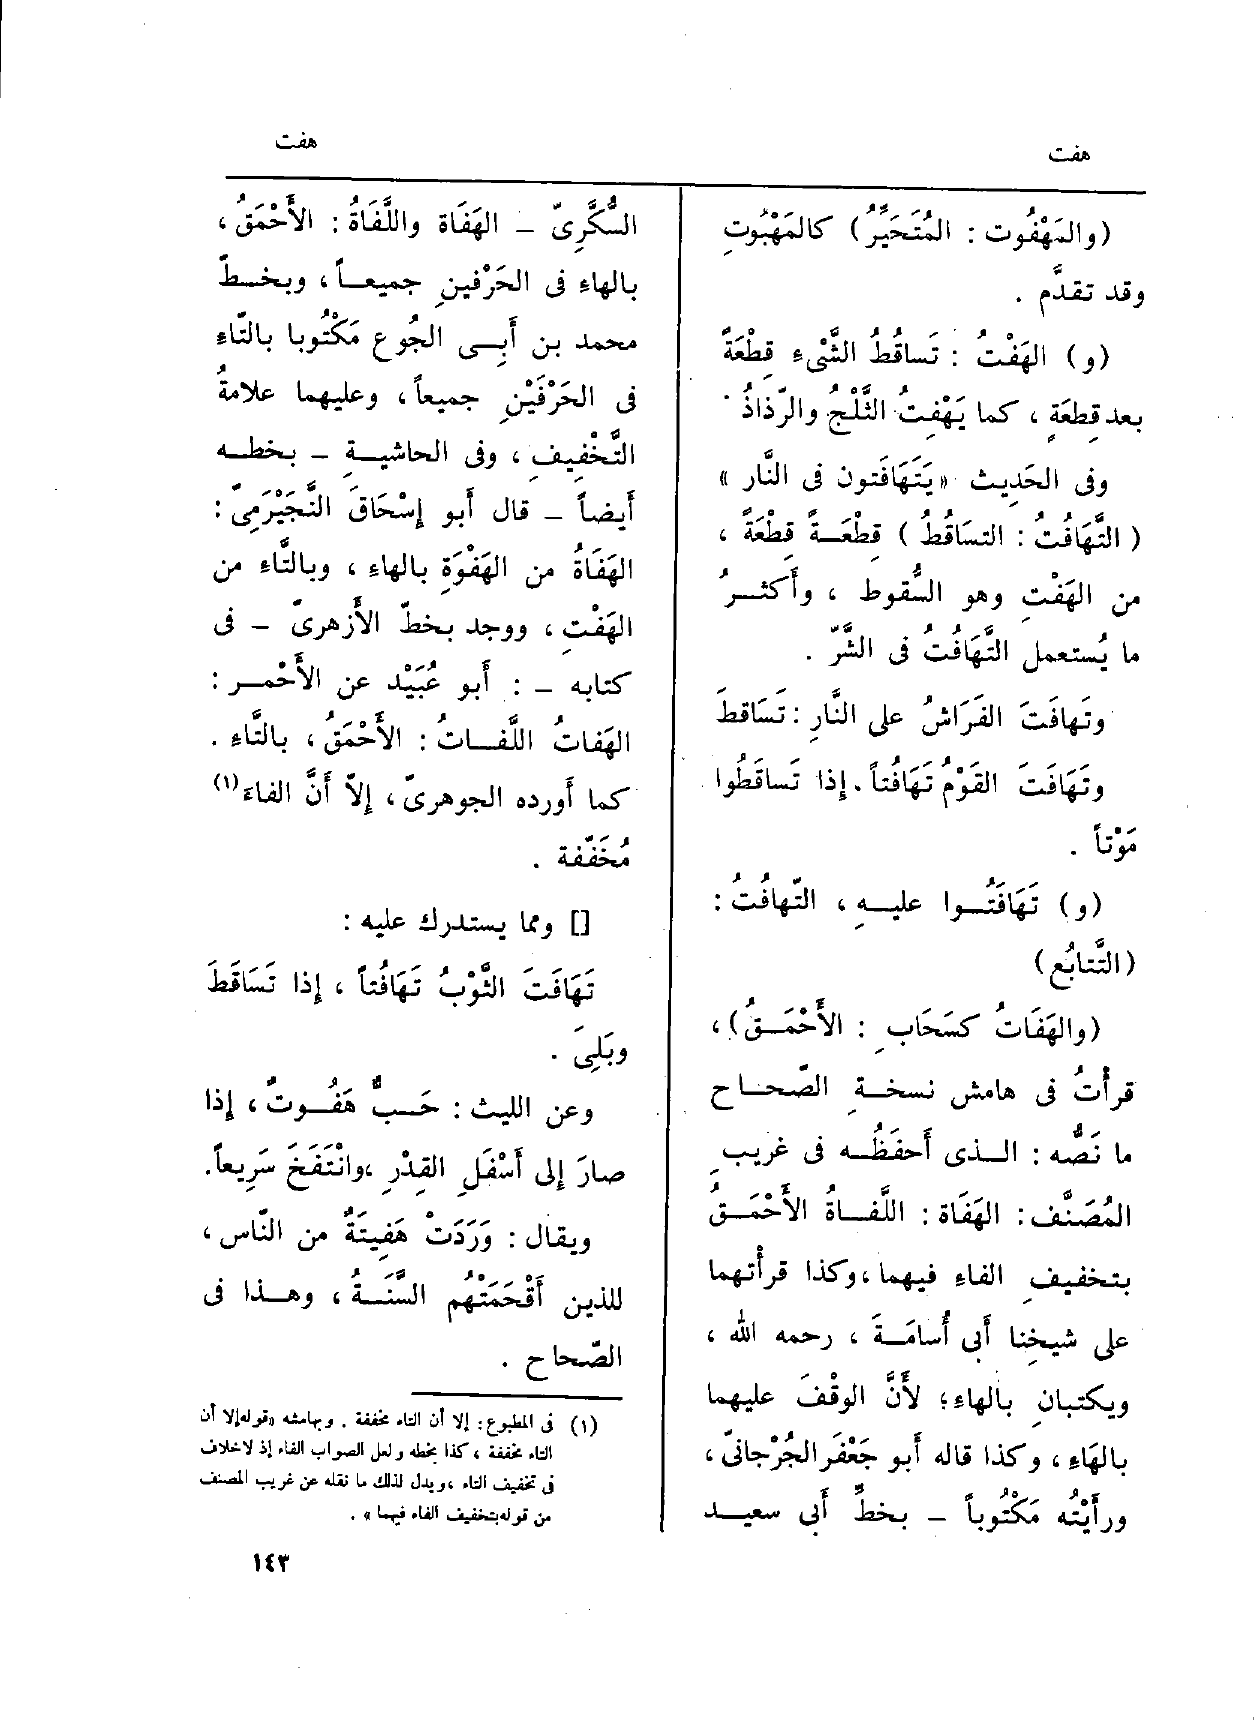 هفت
هفت
(والمَهْفُوت : المُتَحَيِّرُ) كالمَهْبُوتِ
وقد تقدَّم .
(و) الهَفْتُ : تَساقُطُ الشَّىْءِ قِطْعَةً
بعد قِطعَةٍ ، كما يَهْفِتُ الثَّلْجُ والرّذاذُ .
وفى الحَدِيث «يَتَهَافَتون فى النَّار »
( التَّهَافُتُ : التسَاقُطُ ) قِطْعَـةً قِطْعَةً ،
من الهَفْتِ وهو السُّقوط ، وأَكثـرُ
ما يُستعمل التَّهَافُتُ فى الشَّرّ .
وتَهافَتَ الفَرَاشُ على النَّارِ : تَسَاقَطَ
وتَهَافَتَ القَوْمُ تَهَافُتاً . إِذا تَساقَطُوا
مَوْتاً .
(و) تَهَافَتُـوا عليـهِ ، التّهافُتُ :
(التَّتابُع)
(والهَفَاتُ كسَحَابٍ : الأَحْمَـقُ) ،
قرأْتُ فى هامش نسخـةِ الصّحـاح
ما نَصُّه : الـذى أَحفَظُـه فى غريبِ
المُصَنَّف : الهَفَاة : اللَّفـاةُ الأَحْمَـقُ
بتخفيفِ الفاء فيهما ، وكذا قرأْتهما
على شيخنا أَبى أُسامَـةَ ، رحمه الله ،
ويكتبانِ بالهاءِ ؛ لأَنَّ الوَقْفَ عليهما
بالهَاءِ ، وكذا قاله أَبو جَعْفَر الجُرْجانىّ ،
ورأَيْتُه مَكْتُوباً – بخطِّ أَبى سعيـد
السُّكَّرِىّ – الهَفَاة واللَّفَاةُ : الأَحْمَقُ ،
بالهاءِ فى الحَرْفينِ جميعـاً ، وبخـطّ
محمد بن أَبِـى الجُوع مَكْتُوبا بالتّاءِ
فى الحَرْفَيْنِ جميعاً ، وعليهما علامةُ
التَّخْفِيفِ ، وفى الحاشيـةِ – بخطـه
أَيضاً – قال أَبو إِسْحَاقَ النَّجَيْرَمِىّ :
الهَفَاةُ من الهَفْوَةِ بالهاءِ ، وبالتَّاءِ من
الهَفْتِ ، ووجد بخطّ الأَزهرىّ – فى
كتابه – : أَبو عُبَيْد عن الأَحْمـر :
الهَفاتُ اللَّفـاتُ : الأَحْمَقُ ، بالتَّاءِ .
كما أَورده الجوهرىّ ، إِلاّ أَنَّ الفاءَ(١)
مُخَفّفة .
[] ومما يستدرك عليه :
تَهَافَتَ الثَّوْبُ تَهَافُتاً ، إِذا تَسَاقَطَ
وبَلِىَ .
وعن الليث : حَـبٌّ هَفُـوتٌ ، إِذا
صارَ إِلى أَسْفَلِ القِدْرِ ، وانْتَفَخَ سَرِيعاً .
ويقال : وَرَدَتْ هَفِيتَةٌ من النّاس ،
للذين أَقْحَمَتْهُم السَّنَـةُ ، وهـذا فى
الصّحاح .
(١) فى المطبوع : إلا أن التاء مخففة . وبهامشه «قوله إلا أن
التاء مخففة ، كذا بخطه ولعل الصواب الفاء إذ لا خلاف
فى تخفيف التاء ، ويدل لذلك ما نقله عن غريب المصنف
من قوله بتخفيف الفاء فيهما » .
١٤٣